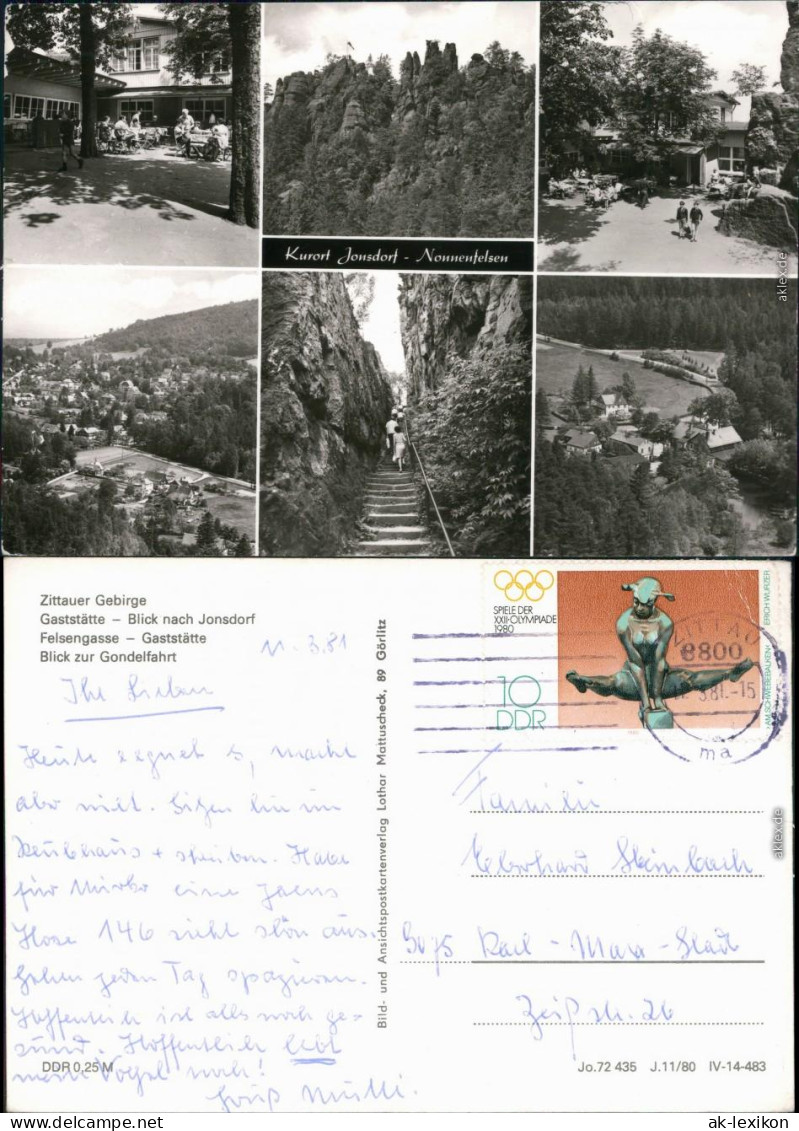 Kurort Jonsdorf - Nonnenfelsen
aklex.de
Zittauer Gebirge
Gaststätte – Blick nach Jonsdorf
Felsengasse – Gaststätte
Blick zur Gondelfahrt
11.3.81
Ihr Lieben
Heute regnet es, macht
aber nichts. Sitzen hier im
+ schreiben. Habe
für Mirko eine Jeans
Hose 146 sieht schön aus.
Gehen jeden Tag spazieren.
Hoffentlich ist alles noch ge=
sund. Hoffentlich lebt
mein Vogel noch!
Gruß Mutti.
DDR 0,25 M
Bild- und Ansichtspostkartenverlag Lothar Mattuscheck, 89 Görlitz
SPIELE DER
XXII. OLYMPIADE
1980
10
DDR
„AM SCHWEBEBALKEN“ ERICH WURZER
ZITTAU
8800
3.81.-15
ma
Familie
Eberhard Steinbach
9075 Karl-Marx-Stadt
Zeißstr. 26
Jo. 72 435 J.11/80 IV-14-483
aklex.de
www.ak-lexikon.de
ak-lexikon